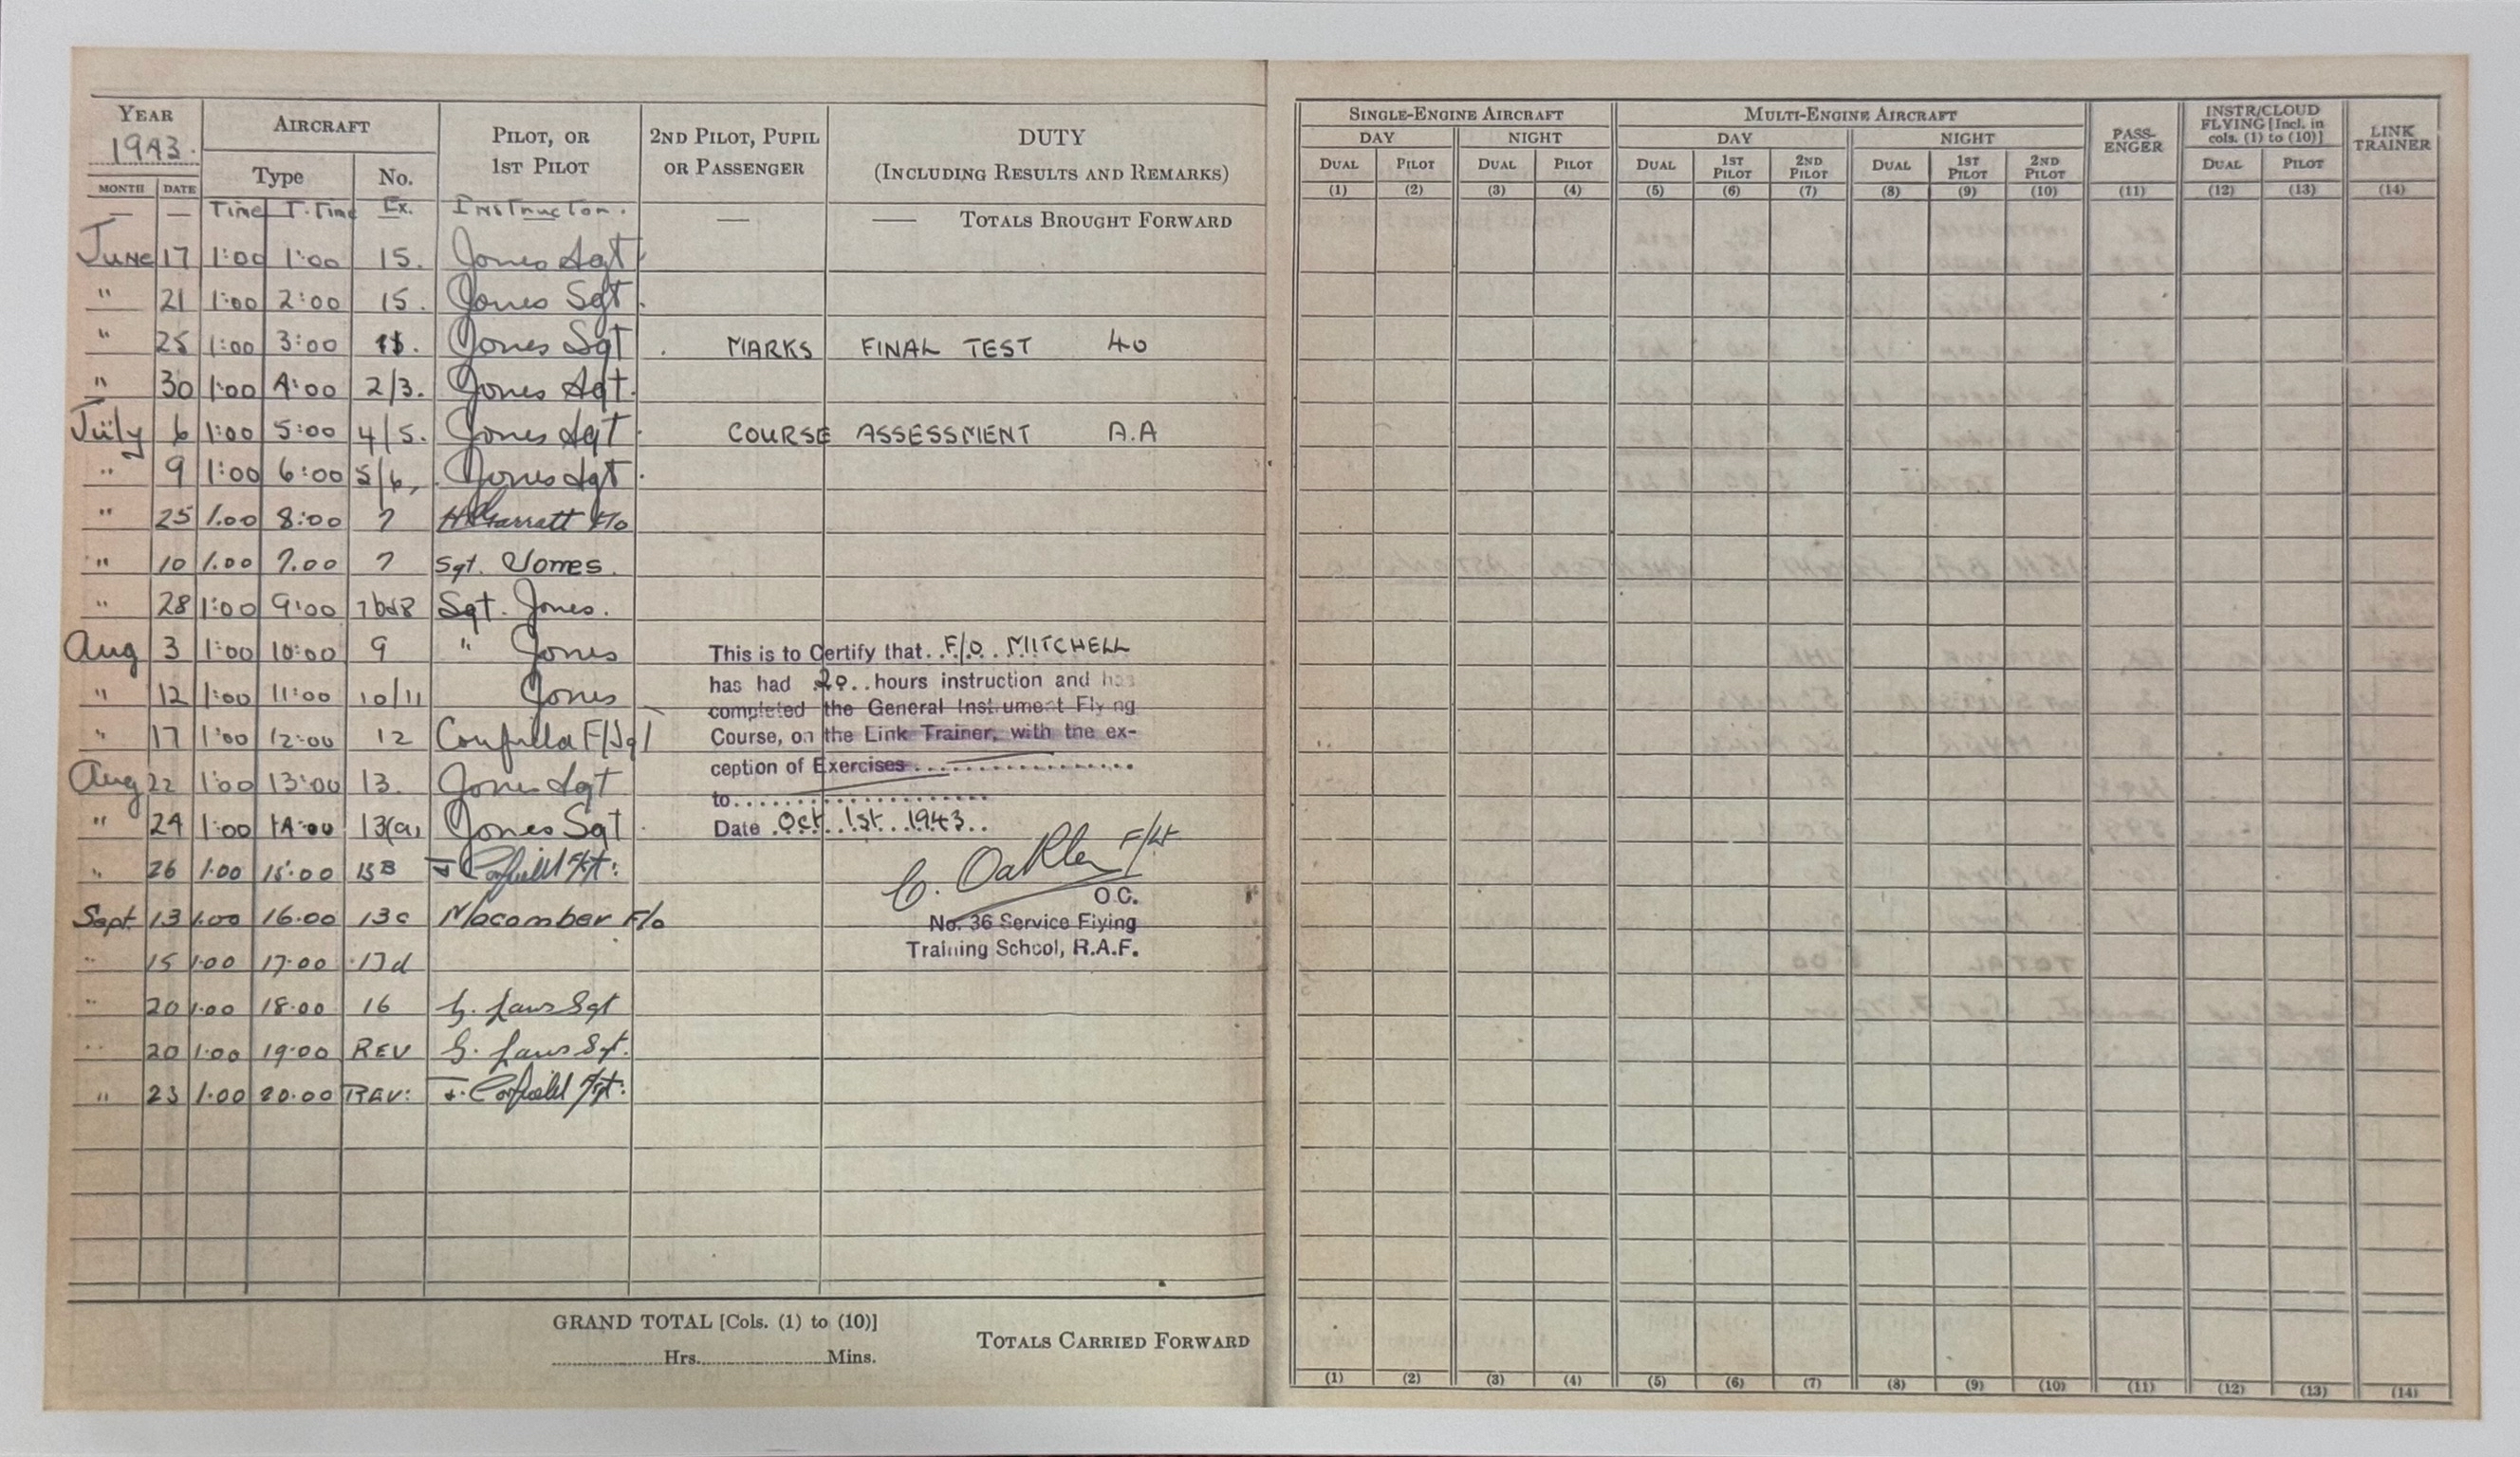 YEAR 1943. AIRCRAFT PILOT, OR 1ST PILOT 2ND PILOT, PUPIL OR PASSENGER DUTY (INCLUDING RESULTS AND REMARKS)
MONTH DATE Type No.
— — Time T.Time Ex. Instructor. — — TOTALS BROUGHT FORWARD
June 17 1:00 1:00 15. Jones Sgt
" 21 1:00 2:00 15. Jones Sgt.
" 25 1:00 3:00 Jones Sgt. MARKS FINAL TEST 40
" 30 1:00 4:00 2/3. Jones Sgt.
July 6 1:00 5:00 4/5. Jones Sgt. COURSE ASSESSMENT A.A
" 9 1:00 6:00 5/6, Jones Sgt.
" 25 1.00 8:00 7 Garratt F/o
" 10 1.00 7.00 7 Sgt. Jones.
" 28 1:00 9:00 Sgt. Jones.
Aug 3 1:00 10:00 9 " Jones
" 12 1:00 11:00 10/11 Jones
" 17 1:00 12:00 12
Aug 22 1:00 13:00 13. Jones Sgt
" 24 1:00 14:00 13(a) Jones Sgt.
" 26 1.00 15:00 Corfield
Sept. 13 1.00 16.00 13c Macomber F/o
" 15 1.00 17.00 13d
" 20 1.00 18.00 16 G. Laws Sgt
" 20 1.00 19:00 REV G. Laws Sgt.
" 23 1.00 20.00 REV: Corfield
This is to Certify that.. F/O. MITCHELL
has had 20.. hours instruction and has
completed the General Instrument Flying
Course, on the Link Trainer, with the ex-
ception of Exercises
to
Date Oct. 1st. 1943..
C. Oakley F/Lt
O.C.
No. 36 Service Flying
Training School, R.A.F.
GRAND TOTAL [Cols. (1) to (10)]
Hrs. Mins.
TOTALS CARRIED FORWARD
SINGLE-ENGINE AIRCRAFT MULTI-ENGINE AIRCRAFT PASS-ENGER INSTR/CLOUD FLYING [Incl. in cols. (1) to (10)] LINK TRAINER
DAY NIGHT DAY NIGHT
DUAL PILOT DUAL PILOT DUAL 1ST PILOT 2ND PILOT DUAL 1ST PILOT 2ND PILOT DUAL PILOT
(1) (2) (3) (4) (5) (6) (7) (8) (9) (10) (11) (12) (13) (14)
(1) (2) (3) (4) (5) (6) (7) (8) (9) (10) (11) (12) (13) (14)